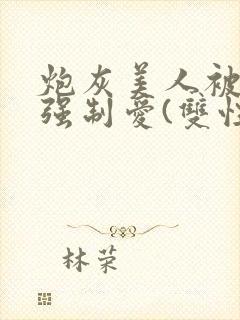 炮灰美人被
强制愛(雙性
林荣